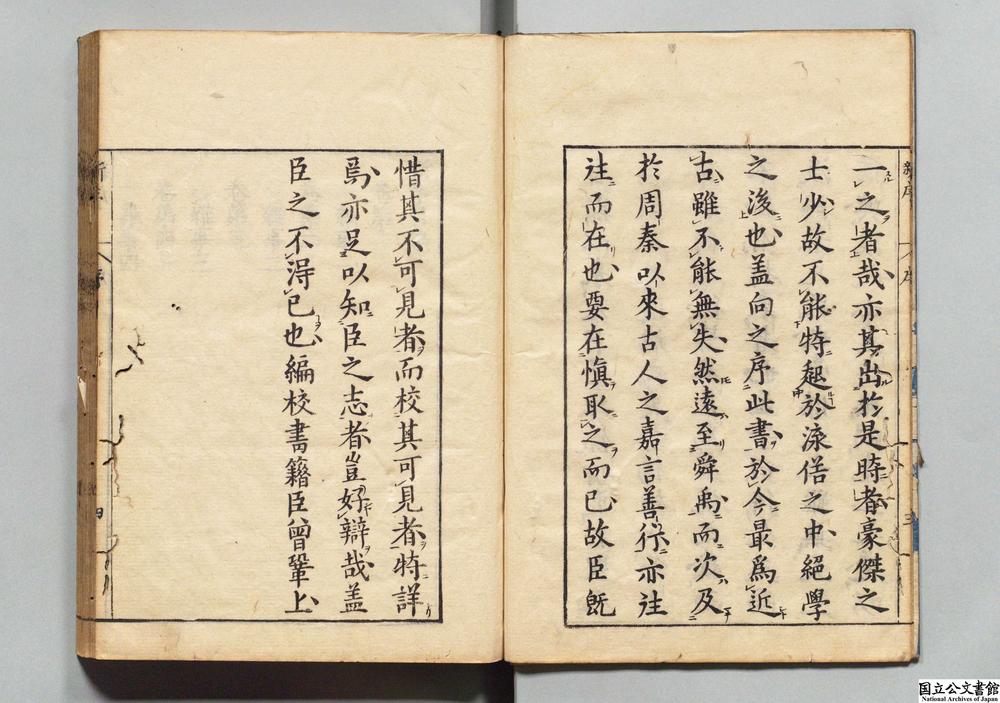 新序 序 三
一之者哉亦其出於是時者豪傑之
士少故不能特起於流俗之中絕學
之後也盖向之序此書於今最爲近
古雖不能無失然遠至舜禹而次及
於周秦以來古人之嘉言善行亦往
往而在也要在慎取之而已故臣旣
惜其不可見者而校其可見者特詳
焉亦足以知臣之志者豈好辯哉盖
臣之不得已也編校書籍臣曾鞏上
新序 序 四
国立公文書館
National Archives of Japan